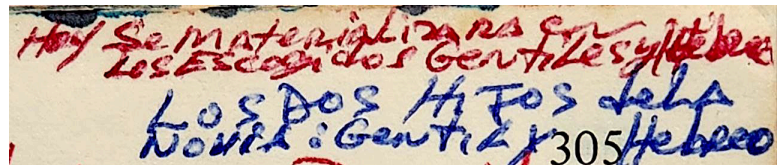 Hoy se materializara en
los Escogidos Gentiles y Hebreo
LOS DOS HIJOS de LA
NOVIA: Gentil y Hebreo
305